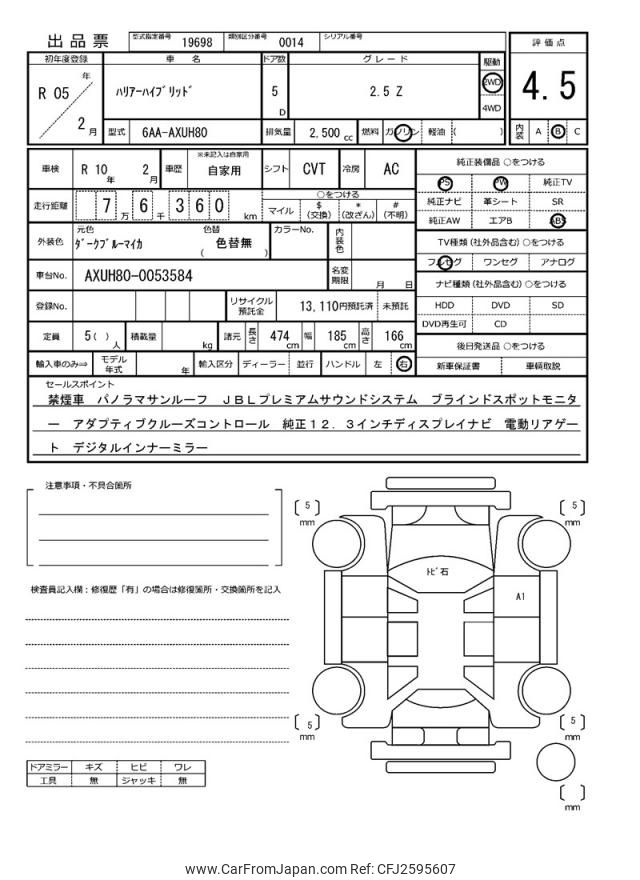 出品票 型式指定番号 19698 類別区分番号 0014 シリアル番号
評価点
初年度登録 車名 ドア数 グレード 駆動
R 05 年 2 月 ﾊﾘｱｰﾊｲﾌﾞﾘｯﾄﾞ 5 D 2.5 Z 2WD 4WD
4.5
型式 6AA-AXUH80 排気量 2,500 cc 燃料 ガソリン 軽油 ( )
内装 A B C
車検 R 10 年 2 月 車歴 ※未記入は自家用 自家用 シフト CVT 冷房 AC
純正装備品 ○をつける
PS PW 純正TV
純正ナビ 革シート SR
純正AW エアB ABS
走行距離 7 万 6 千 360 km
○をつける
マイル $(交換) *(改ざん) #(不明)
外装色 元色 ﾀﾞｰｸﾌﾞﾙｰﾏｲｶ 色替 ( 色替無 ) カラーNo. 内装色
TV種類 (社外品含む) ○をつける
フルセグ ワンセグ アナログ
車台No. AXUH80-0053584 名変期限 月 日
ナビ種類 (社外品含む) ○をつける
HDD DVD SD
DVD再生可 CD
登録No. リサイクル預託金 13,110円預託済 未預託
定員 5 ( ) 人 積載量 kg 諸元 長さ 474 cm 幅 185 cm 高さ 166 cm
後日発送品 ○をつける
新車保証書 車輌取説
輸入車のみ⇒ モデル年式 年 輸入区分 ディーラー 並行 ハンドル 左 右
セールスポイント
禁煙車 パノラマサンルーフ ＪＢＬプレミアムサウンドシステム ブラインドスポットモニタ
ー アダプティブクルーズコントロール 純正１２．３インチディスプレイナビ 電動リアゲー
ト デジタルインナーミラー
注意事項・不具合箇所
検査員記入欄：修復歴「有」の場合は修復箇所・交換箇所を記入
5 mm
5 mm
ﾄﾋﾞ石
A1
5 mm
5 mm
mm
ドアミラー キズ ヒビ ワレ
工具 無 ジャッキ 無
www.CarFromJapan.com Ref: CFJ2595607